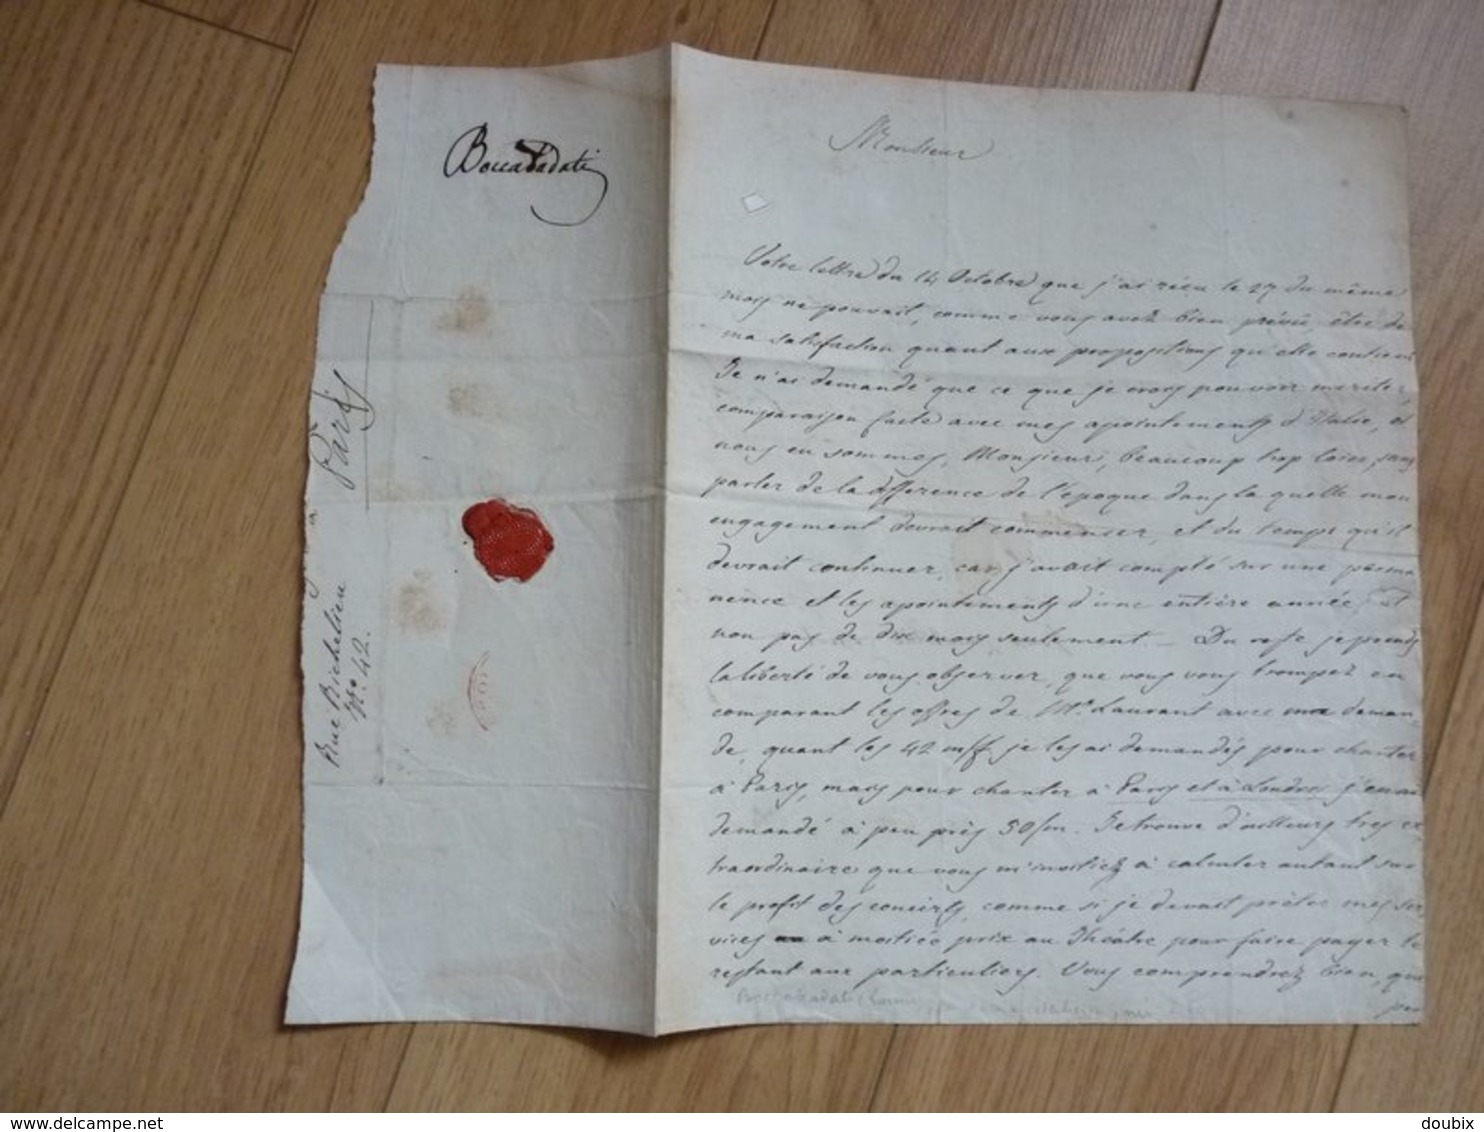 Boccabadati
Paris
Rue Richelieu
N.º 42.
Monsieur
Votre lettre du 14 Octobre que j'ai réçu le 27 du même
mois ne pouvait, comme vous avez bien prévû, être de
ma satisfaction quant aux propositions qu'elle contient
Je n'ai demandé que ce que je crois pouvoir meriter,
comparaison faite avec mes apointements d'Italie, et
nous en sommes, Monsieur, beaucoup trop loin, sans
parler de la difference de l'époque dans la quelle mon
engagement devrait commencer, et du temps qu'il
devrait continuer, car j'avait compté sur une perma
nence et les apointements d'une entière année, et
non pas de dix mois seulement. - Du reste je prends
la liberté de vous observer, que vous vous trompez en
comparant les offres de Mr. Laurant avec ma deman
de, quant les 42 m/f je les ai demandés pour chanter
à Paris, mais pour chanter à Paris et à Londres j'en ai
demandé à peu près 50/m. Je trouve d'ailleurs tres ex
traordinaire que vous m'invitiez à calculer autant sur
le profit des concerts, comme si je devait prêter mes ser
vices à moitiée prix au Théâtre pour faire payer le
restant aux particuliers. Vous comprendrez bien, que
par
Boccabadati
www.delcampe.net
doubix